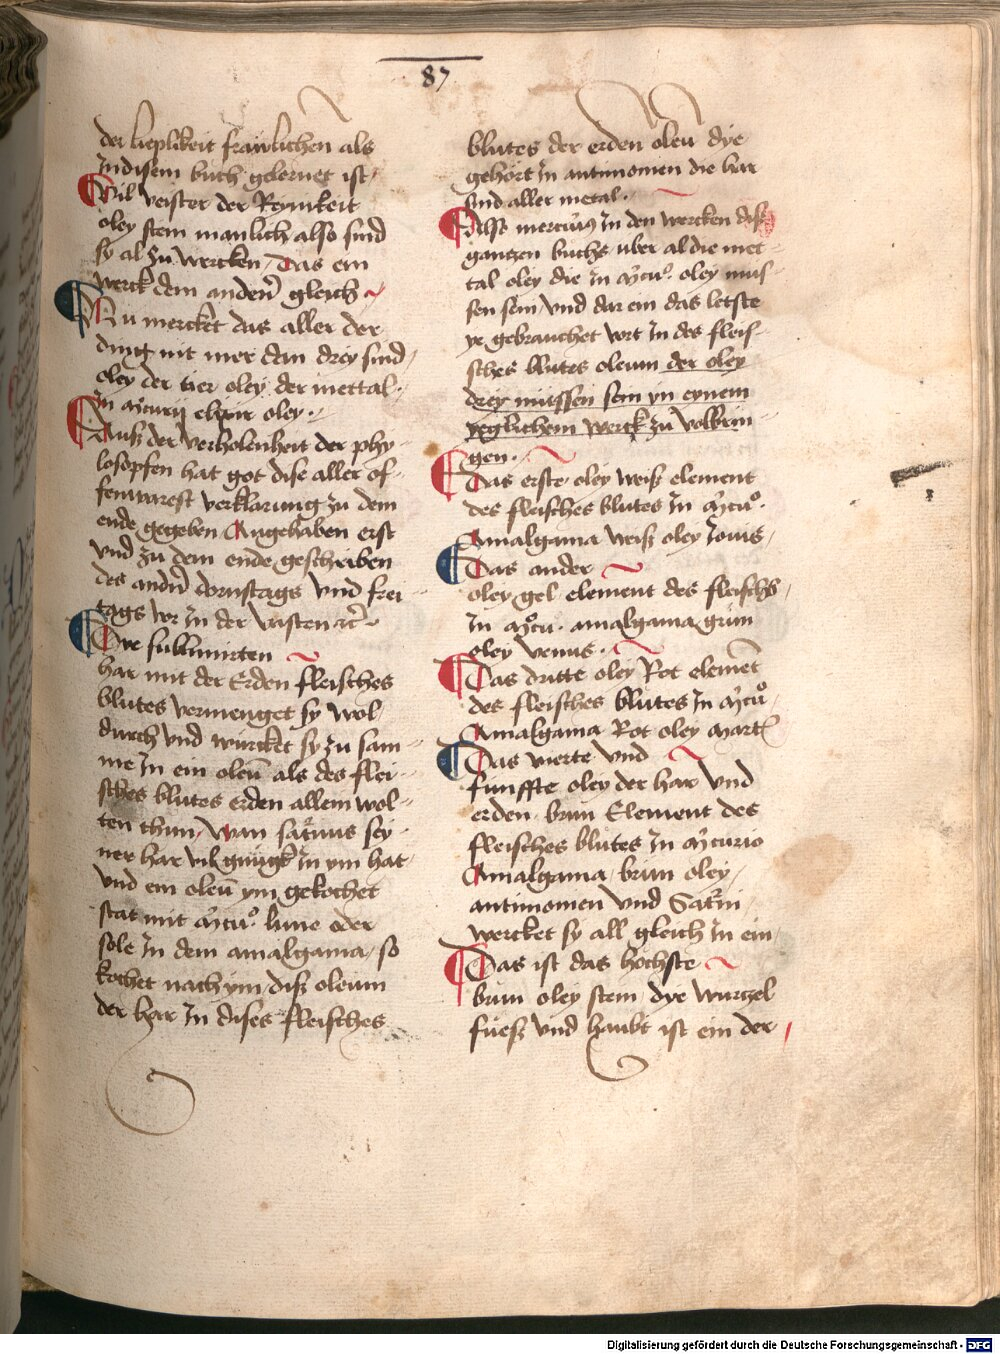 87
der lieplikeit frawlichen als
Jn disem buch gelernet ist
Vil veister der Reynikeit
oley stein manlich also sind
sy al zu wercken, Das ein
werck dem andern gleich
Nu mercket das aller der
ding nit mer dan drey sind,
oley der tier oley der mettal
jn mercurij elixir oley
Auß der verholenheit der phy
losopfen hat got dise aller of
fenwarest verklarung zu dem
ende gegeben Angehaben erst
vnd zu dem ende geschriben
des andern dornstags vnd frei
tags vor Jn der vasten
Die sublimirten
har mit der Erden fleisches
blutes vermenget sy wol
durch vnd wurcket sy zu sam
me Jn ein oleu als des flei
sches blutes erden allein wol
ten thun, Wan saturnus sey
ner har vil gnugk Jn ym hat
vnd ein oleu ym gekochet
stat mit lune oder
sole Jn dem amalgama, so
kochet nach ym, diß oleum
der har Jn dises fleisches
blutes der erden oleu dye
gehort Jn antimonien die har
sind aller metal
Also mercurius Jn den wercken diß
ganczen buchs uber al die met
tal oley die Jn oley mus
sen sein, vnd dar ein das letste
ye gebrauchet wirt Jn des fleis
sches blutes oleum der oley
drey müssen sein yn eynem
yeglichem werck zu volbrin
gen
Das erste oley weiß element
des fleisches blutes Jn
Amalgama weiß oley Jouis,
Das ander
oley gel element des fleischs
Jn amalgama grün
oley venus
Das dritte oley Rot element
des fleisches blutes Jn
Amalgama Rot oley martis
Das vierte vnd
funffte oley der har vnd
erden brun Element des
fleisches blutes Jn mercurio
Amalgama, brun oley,
antimonien vnd Saturni
wercket sy all gleich Jn ein,
Das ist das hochste
brun oley stein dye wurczel
fueß vnd haubt ist ein der
Digitalisierung gefördert durch die Deutsche Forschungsgemeinschaft - DFG